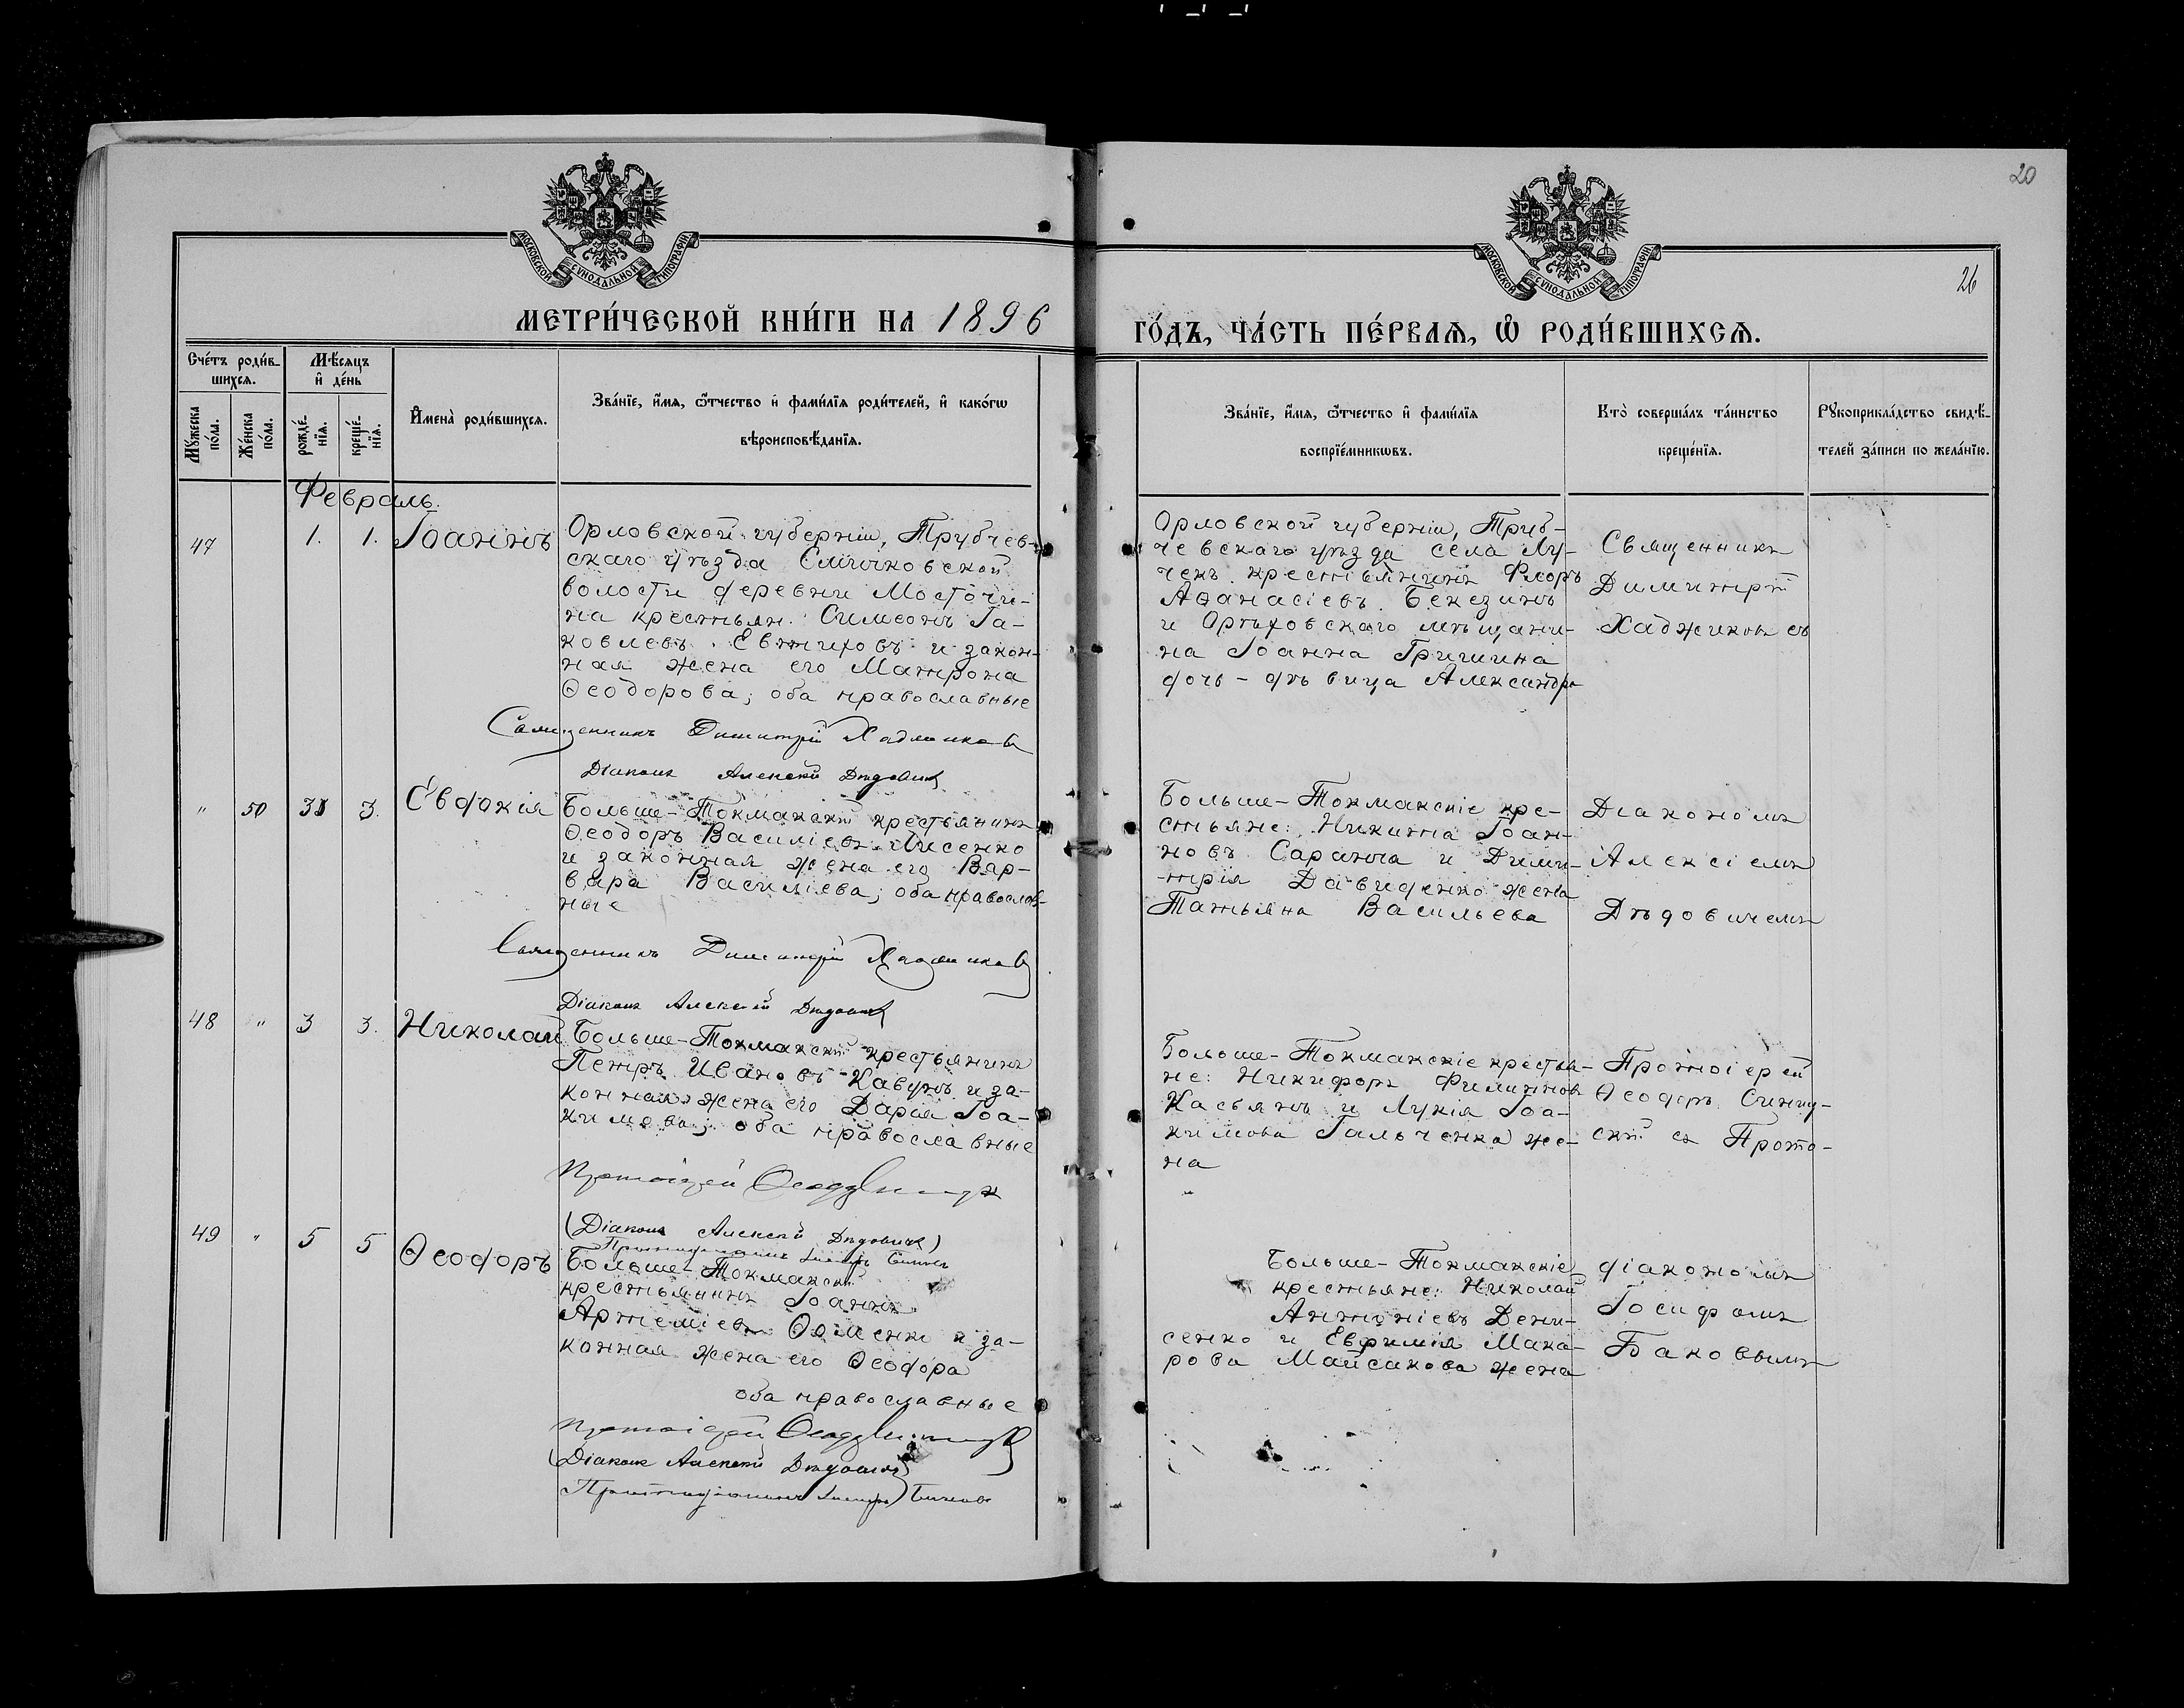 20
26
МОСКОВСКОЙ СѴНОДАЛЬНОЙ ТИПОГРАФІИ
МОСКОВСКОЙ СѴНОДАЛЬНОЙ ТИПОГРАФІИ
МЕТРИ́ЧЕСКОЙ КНИ́ГИ НА 1896
ГО́ДЪ, ЧА́СТЬ ПЕ́РВАѦ, Ѽ РОДИ́ВШИХСѦ.
Сче́тъ роди́в-
шихсѧ.
Мѣ́сѧцъ
и҆ де́нь
Мꙋ́жеска
по́ла.
Же́нска
по́ла.
рожде́-
нїѧ.
креще́-
нїѧ.
И҆мена̀ роди́вшихсѧ.
Зва́нїе, и҆́мѧ, ѻ҆́тчество и҆ фами́лїѧ роди́телей, и҆ како́гѡ
вѣроисповѣ́данїѧ.
Зва́нїе, и҆́мѧ, ѻ҆́тчество и҆ фами́лїѧ
воспрїе́мникѡвъ.
Кто̀ соверша́лъ та́инство
креще́нїѧ.
Рꙋкоприкла́дство свидѣ́-
телей за́писи по жела́нїю.
Февраль.
47
1.
1.
Іоаннъ
Орловской губерніи, Трубчев-
скаго уѣзда
волости деревни Мосточи-
на крестьян. Симеонъ Іа-
ковлевъ Евтиховъ и закон-
ная жена его Матрона
Ѳеодорова; оба православные
Священникъ Димитрій Хаджиновъ
Діаконъ Алексій Дѣдовичъ
Орловской губерніи, Труб-
чевскаго уѣзда села Лу-
чекъ крестьянинъ Флоръ
Аѳанасіевъ Бекезинъ
и Орѣховскаго мѣщани-
на Іоанна Гришина
дочь - дѣвица Александра
Священникъ
Димитрій
Хаджиновъ
"
50
3
3.
Евдокія
Больше-Токмакскій крестьянинъ
Ѳеодоръ Василіевъ Лисенко
и законная жена его Вар-
вара Василіева; оба православ-
ные
Священникъ Димитрій Хаджиновъ
Діаконъ Алексій Дѣдовичъ
Больше-Токмакскіе кре-
стьяне: Никита Іоан-
новъ Саранча и Дими-
-трія Давиденко жена
Татьяна Васильева
Діакономъ
Алексіемъ
Дѣдовичемъ
48
"
3
3.
Николай
Больше-Токмакскій крестьянинъ
Петръ Ивановъ Кавунъ и за-
конная жена его Дарія Іоа-
кимова; оба православные
Протоіерей Ѳеодоръ
(Діаконъ Алексій Дѣдовичъ)
Больше-Токмакскіе крестья-
не: Никифоръ Филипповъ
Касьянъ и Лукія Іоа-
кимова Гальченка же-
на
Протоіерей
Ѳеодоръ
49
"
5
5
Ѳеодоръ
Больше-Токмакскій
крестьянинъ Іоаннъ
Артеміевъ и за-
конная жена его Ѳеодора
оба православные
Протоіерей Ѳеодоръ
(Діаконъ Алексій Дѣдовичъ)
Больше-Токмакскіе
крестьяне: Николай
Антоніевъ Дени-
сенко и Евфимія Мака-
рова Майсакова жена
діакономъ
Іосифомъ
Баковымъ